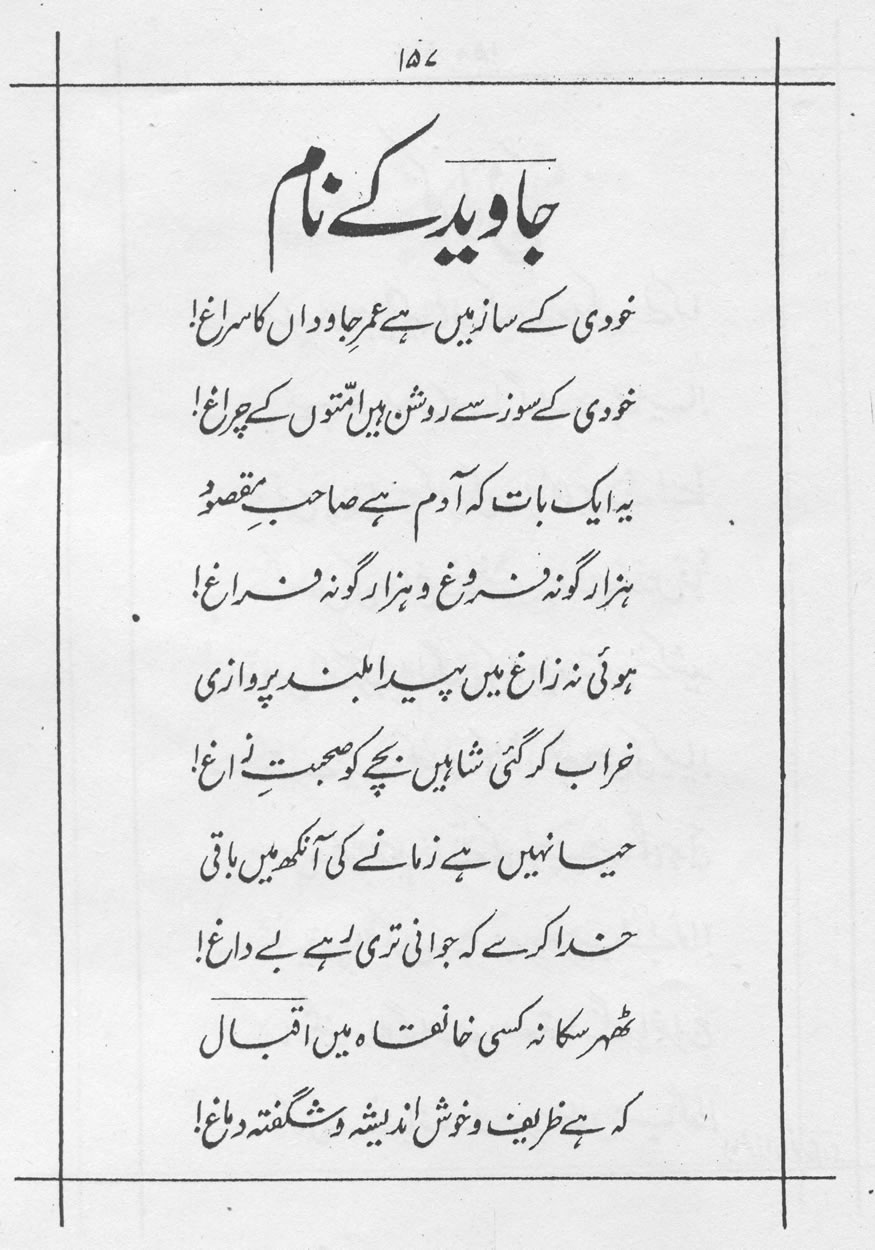 ۱۵۷
جاوید کے نام
خودی کے ساز میں ہے عمرِ جاوداں کا سراغ!
خودی کے سوز سے روشن ہیں امّتوں کے چراغ!
یہ ایک بات کہ آدم ہے صاحبِ مقصود
ہزار گونہ فروغ و ہزار گونہ فراغ!
ہوئی نہ زاغ میں پیدا بلند پروازی
خراب کر گئی شاہیں بچے کو صحبتِ زاغ!
حیا نہیں ہے زمانے کی آنکھ میں باقی
خدا کرے کہ جوانی تری رہے بے داغ!
ٹھہر سکا نہ کسی خانقاہ میں اقبال
کہ ہے ظریف و خوش اندیشہ و شگفتہ دماغ!